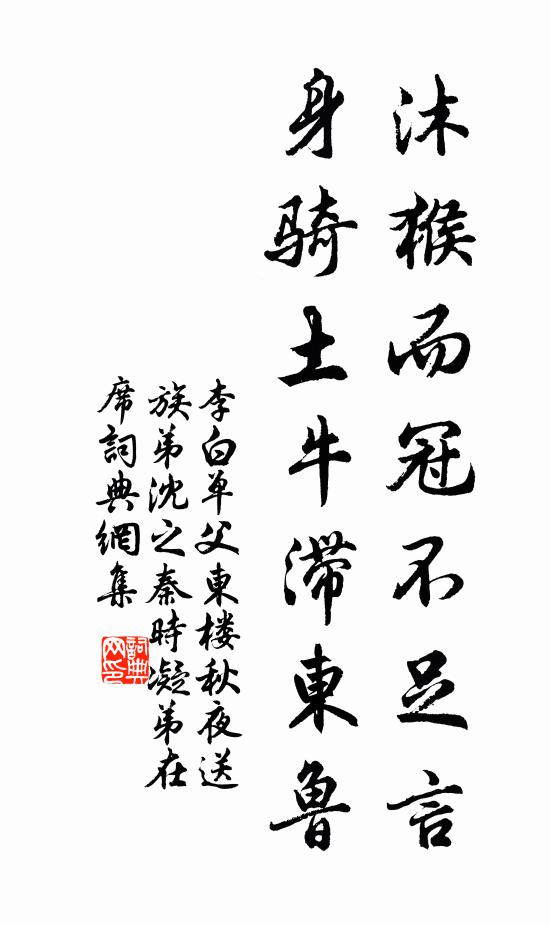 沐猴而冠不足言
身骑土牛滞東魯
李白单父東楼秋夜送
族弟沈之秦時凝弟在
席詞典網集
詞典
网印